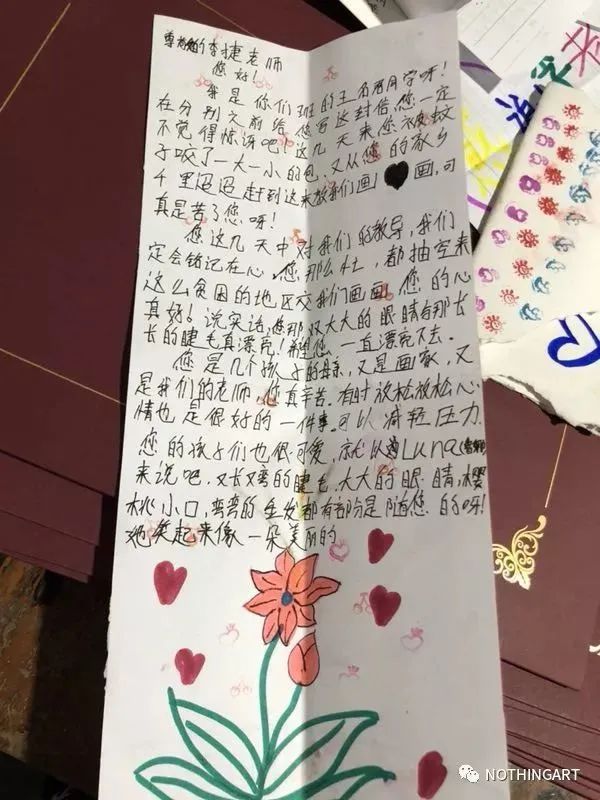 尊敬的李捷老师
您好!
我是你们班的王 同学呀!
在分别之前给您写这封信,您一定
不觉得惊讶吧!这几天来您被蚊
子咬了一大一小的包,又从您的家乡
千里迢迢赶到这来教我们画画,可
真是苦了您呀!
您这几天中对我们的教导,我们
定会铭记在心,您那么忙,都抽空来
这么贫困的地区交我们画画,您的心
真好!说实话,您那双大大的眼睛和那长
长的睫毛真漂亮!希望您一直漂亮下去.
您是几个孩子的母亲,又是画家,又
是我们的老师,您真辛苦.有时放松放松心
情也是很好的一件事.可以减轻压力.
您的孩子们也很可爱,就以Luna
来说吧,又长又弯的睫毛,大大的眼睛,樱
桃小口,弯弯的 发都有部分是随您的呀!
她笑起来像一朵美丽的
NOTHINGART